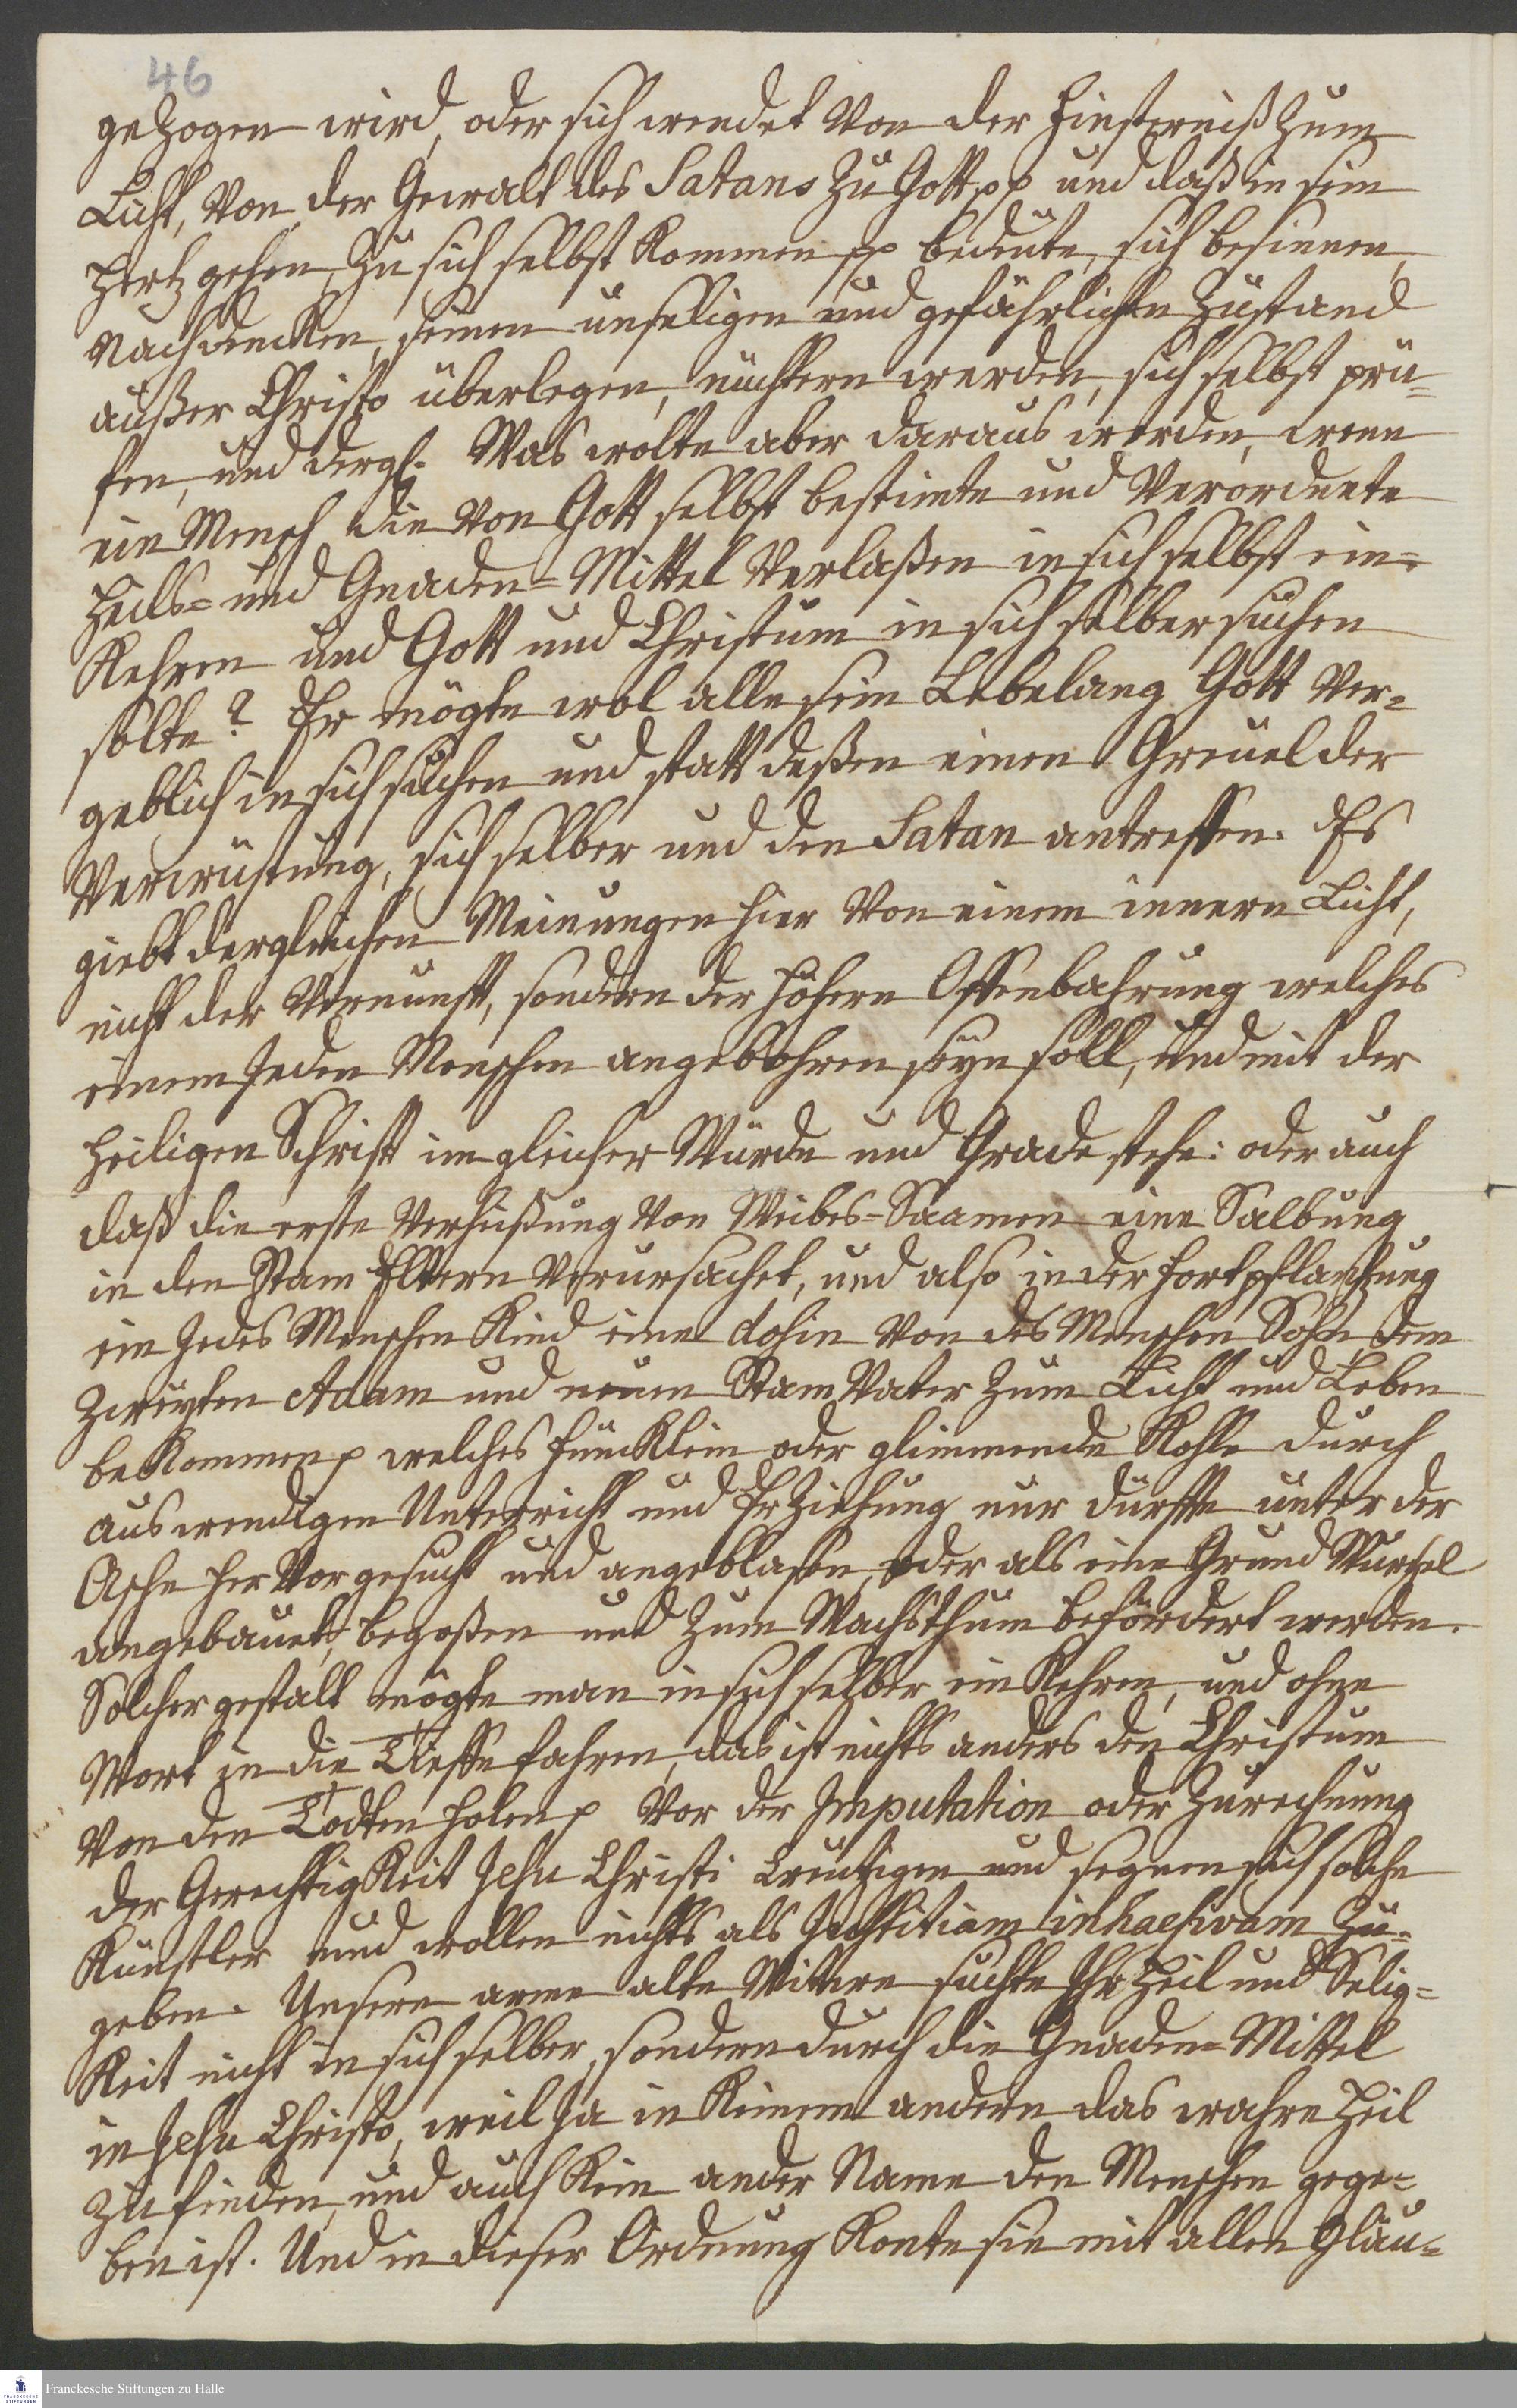 46
gezogen wird, oder sich wendet von der Finsterniß zum
Licht, von der Gewalt des Satans zu Gott pp und daß in sein
Hertz gehen, zu sich selbst kommen pp bedeute, sich besinnen,
nachdencken, seinen unseligen und gefährlichen Zustand
außer Christo überlegen, nüchtern werden, sich selbst prü-
fen, und dergl. Was wolte aber daraus werden, wenn
ein Mensch die von Gott selbst bestimte und verordnete
Heils- und Gnaden-Mittel verlaßen in sich selbst ein-
kehren und Gott und Christum in sich selber suchen
solte? Er mögte wol alle sein Lebelang Gott ver-
geblich in sich suchen und statt deßen einen Greuel der
Verwüstung, sich selber und den Satan antreffen. Es
giebt dergleichen Meinungen hier von einem innern Licht,
nicht der Vernunft, sondern der höhern Offenbahrung welches
einem jeden Menschen angebohren seyn soll, und mit der
heiligen Schrift in gleicher Würde und Grade stehe: oder auch
daß die erste Verheißung von Weibes-Saamen eine Salbung
in den Stam Eltern verursachet, und also in der Fortpflantzung
ein jedes Menschen Kind eine dosin von des Menschen Sohn, dem
zweyten Adam und neuen Stam Vater zum Licht und Leben
bekommen p welches Füncklein oder glimmende Kohle durch
auswendigen Unterricht und Erziehung nur dürffte unter der
Asche hervor gesucht und angeblasen, oder als eine Grund Wurtzel
angebauet, begoßen und zum Wachsthum befördert werden.
Solcher gestalt mögte man in sich selber einkehren, und ohne
Wort in die Tieffe fahren, das ist nichts anders den Christum
von den Todten holen p Vor der Imputation oder Zurechnung
der Gerechtigkeit Jesu Christi Creutzigen und segnen sich solche
Künstler und wollen nichts als Justitiam inhaesivam zu-
geben. Unsere arme alte Wittwe suchte Ihr Heil und Selig-
keit nicht in sich selber, sondern durch die Gnaden-Mittel
in Jesu Christo, weil ja in keinem andern das wahre Heil
zu finden, und auch kein ander Name den Menschen gege-
ben ist. Und in dieser Ordnung konte sie mit allen Gläu-
Franckesche Stiftungen zu Halle